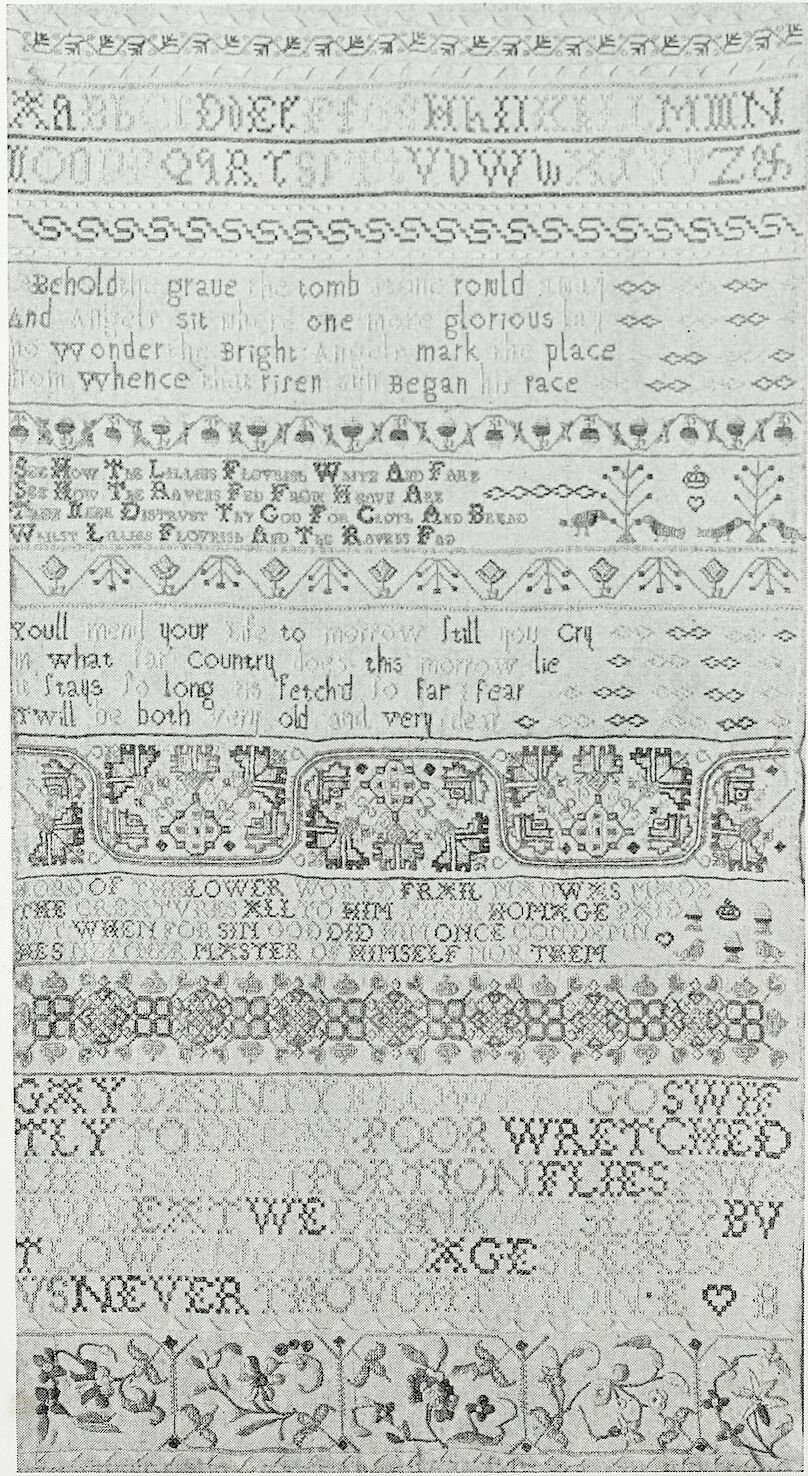 A a B b C c D d E f F f G g H h I I K k L l M m N
n O o P p Q q R r S s T t V v W w X x Y y Z &
Behold the graue the tomb stone rould away
And Angels sit where one more glorious lay
no wonder the Bright Angels mark the place
from whence that risen sun Began his race
See How The Lillies Flovrish White And Fare
See How The Ravens Fed From Heave Are
Then Neer Distrvst Thy God For Cloth And Bread
Whilst Lillies Flovrish And The Ravens Fed
Youll mend your life to morrow still you cry
in what far Country does this morrow lie
it stays so long tis fetch'd so far i fear
Twill be both very old and very dear
LORD OF THE LOWER WORLD FRAIL MAN WAS MADE
THE CREATVRES ALL TO HIM THEIR HOMAGE PAID
BVT WHEN FOR SIN GOD DID HIM ONCE CONDEMN
HES NEITHER MASTER OF HIMSELF NOR THEM
GAY DAINTY FLOWERS GO SWIF
TLY TO DECAY POOR WRETCHED
LIFES SHORT PORTION FLIES AWA
Y WE EAT WE DRINK WE SLEEP BV
T LO WE OLD AGE STEALS ON
VS NEVER THOVGHT VPON E B